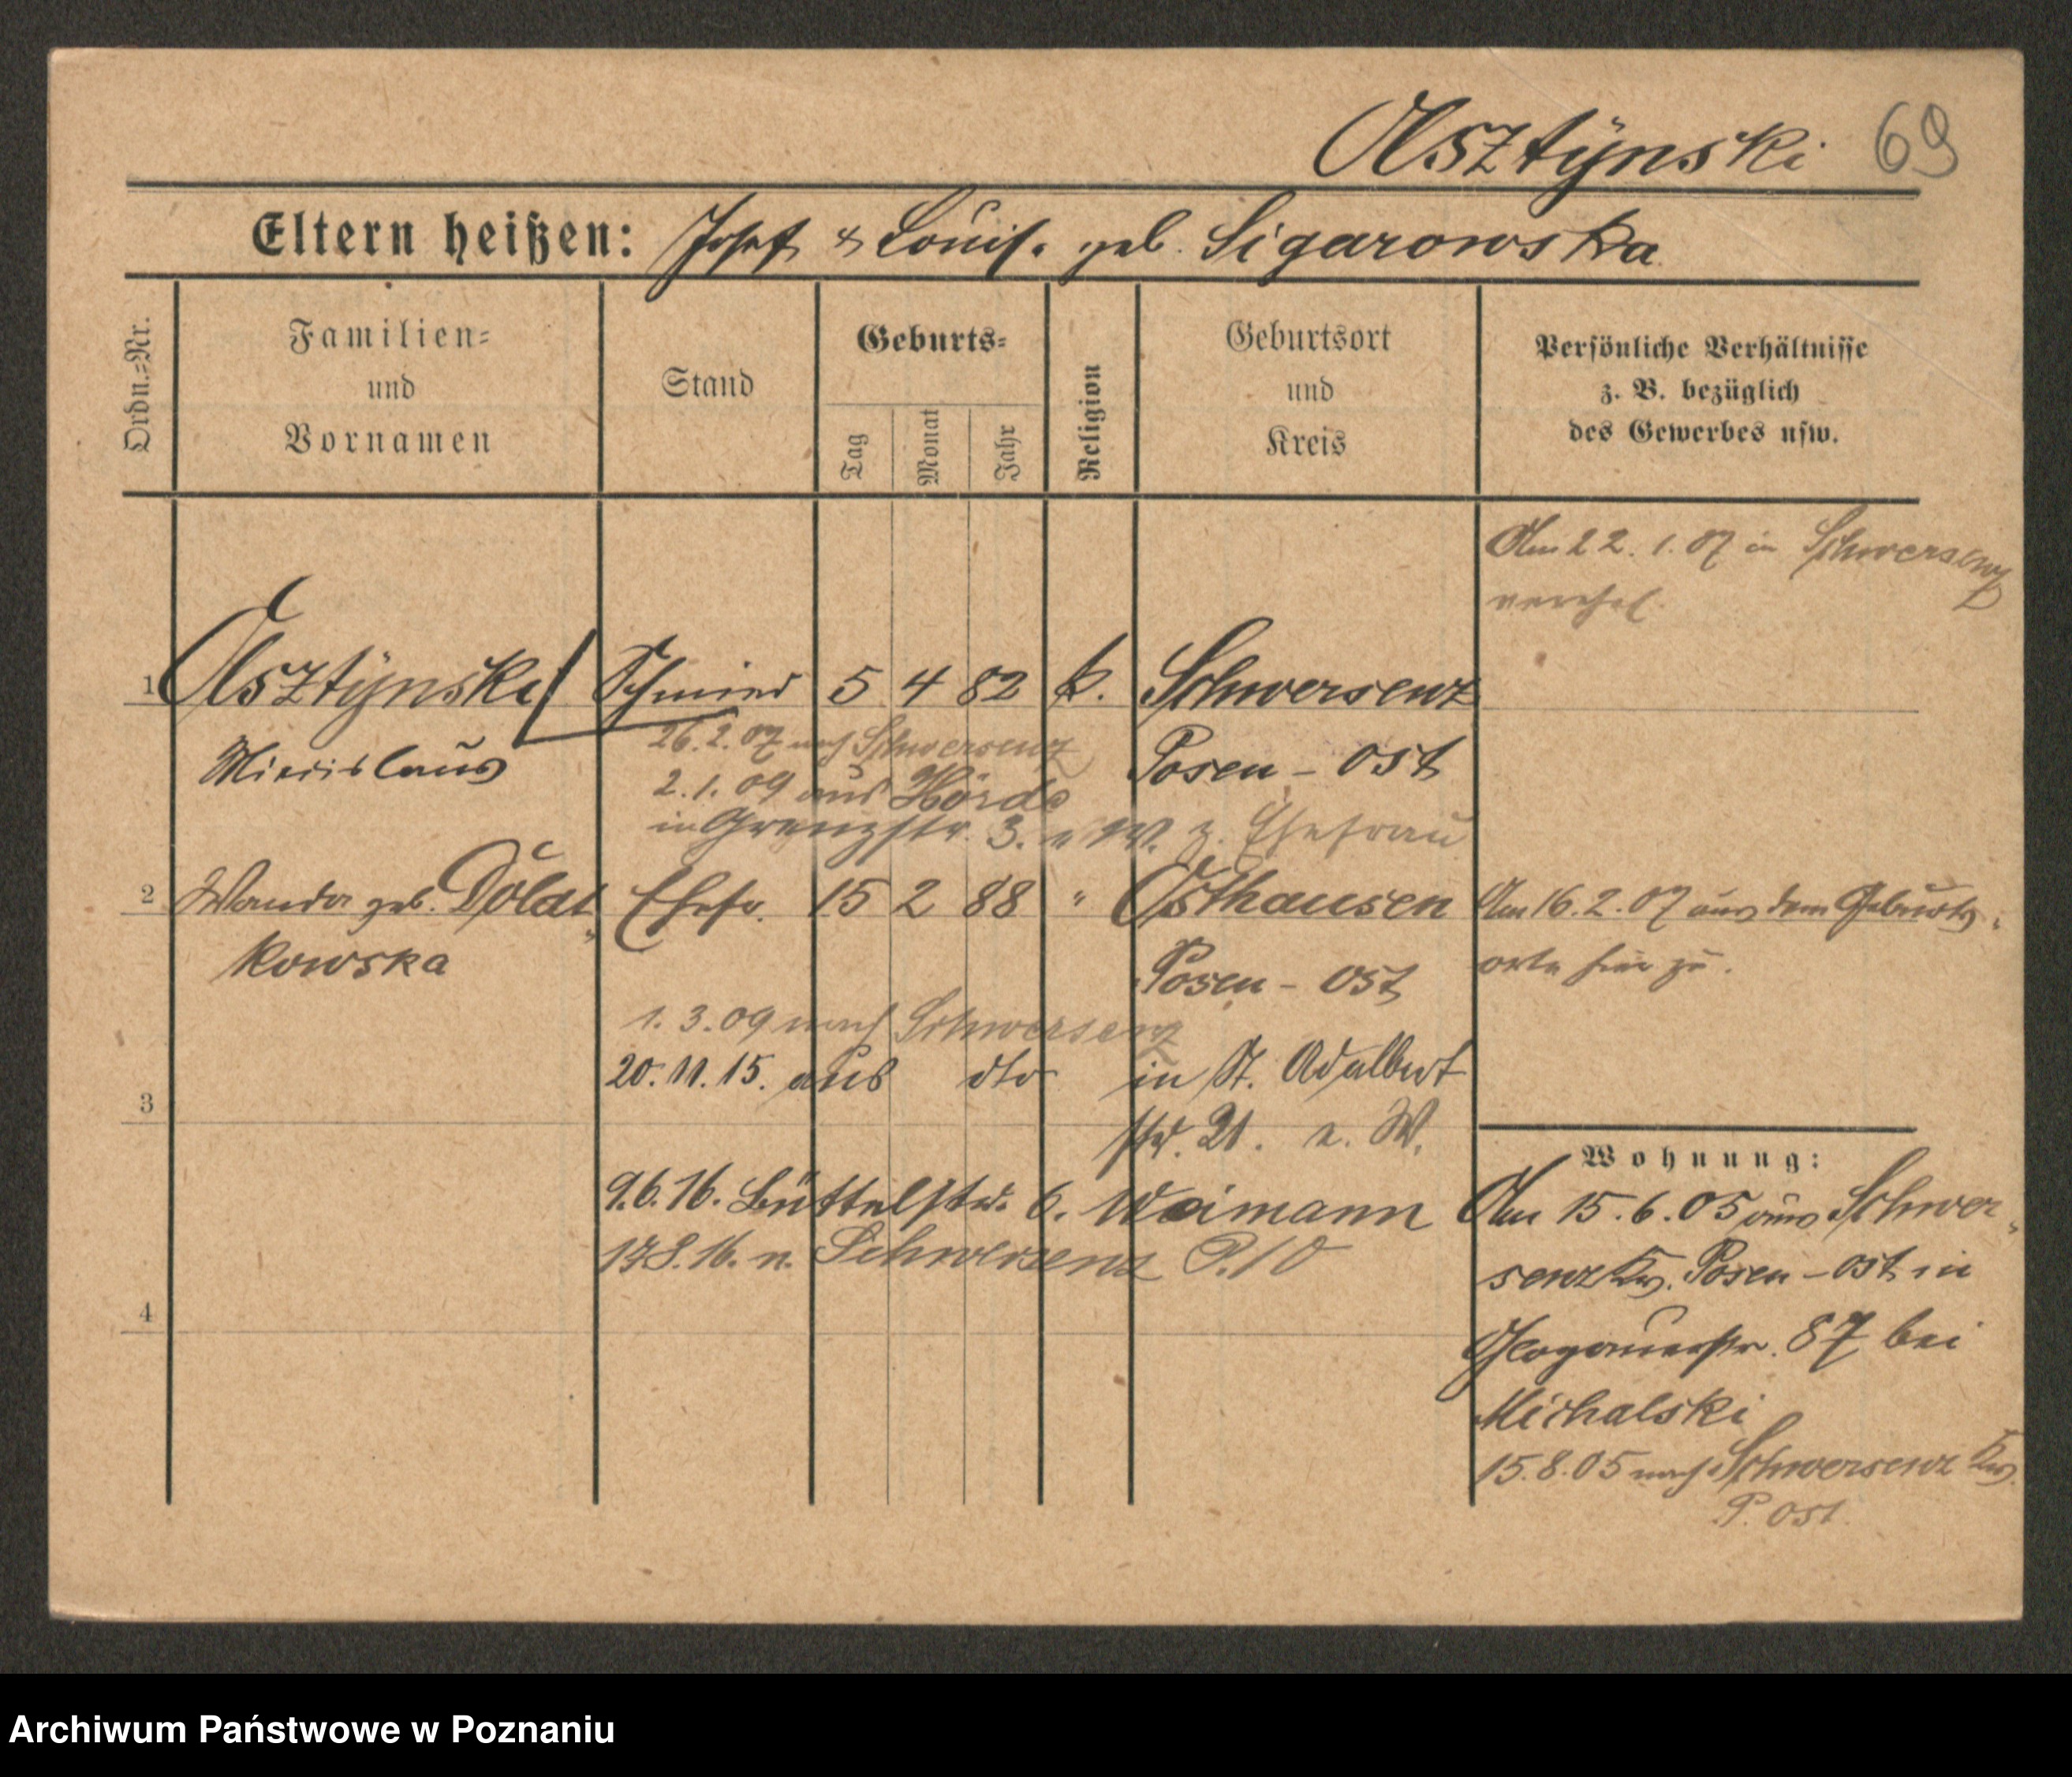 Olsztÿnski 69
Eltern heißen: Josef & Louise geb. Sigarowska
Ordn.=Nr.
Familien=
und
Vornamen
Stand
Geburts=
Tag
Monat
Jahr
Religion
Geburtsort
und
Kreis
Persönliche Verhältnisse
z. B. bezüglich
des Gewerbes usw.
Am 22. 1. 07 in Schwersenz
verehel.
1 Olsztÿnski Schmied 5 4 82 k. Schwersenz
Miecislaus
Posen - Ost
26. 2. 07 nach Schwersenz
2. 1. 09 aus Hörde
in Grenzstr. 3. z. Ehefrau
2 Wanda geb. Dolat Ehefr. 15 2 88 " Osthausen
kowska
Posen - Ost
Am 16. 2. 07 aus dem Geburts
orte hier zu.
1. 3. 09 nach Schwersenz
20. 11. 15. aus dto in St. Adalbert
str. 21. W.
3
9. 6. 16. Büttelstr. 6. Weimann
8. 16. n. Schwersenz
4
Wohnung:
Am 15. 6. 05 aus Schwer
senz Krs. Posen - Ost in
Glogauerstr. 87 bei
Michalski
15. 8. 05 nach Schwersenz Krs.
P. Ost.
Archiwum Państwowe w Poznaniu